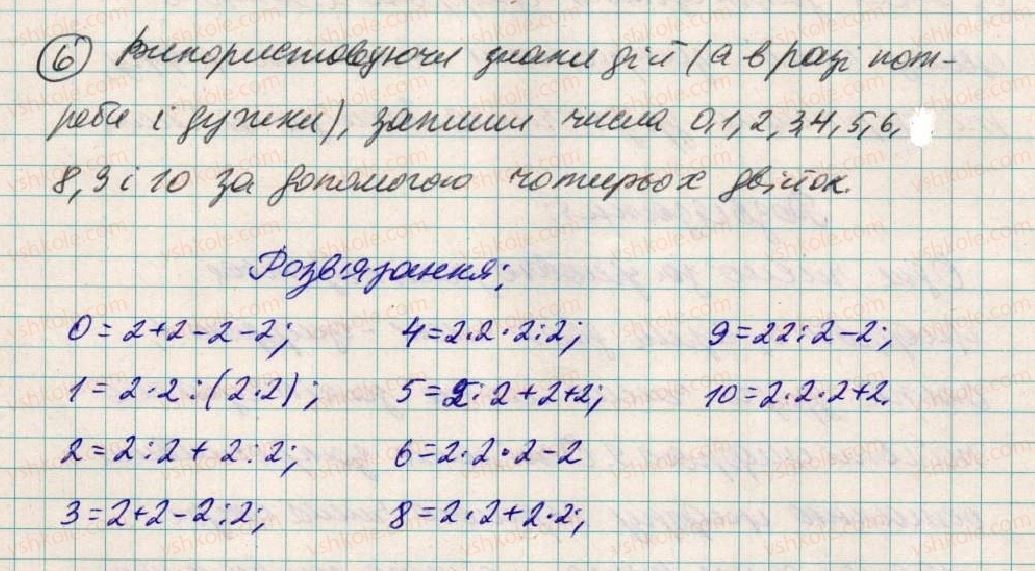 6) Використовуючи знаки дій (а в разі пот-
реби і дужки), запиши числа 0, 1, 2, 3, 4, 5, 6,
8, 9 і 10 за допомогою чотирьох двійок.
Розв'язання:
0 = 2 + 2 - 2 - 2; 4 = 2 · 2 · 2 : 2; 9 = 22 : 2 - 2;
1 = 2 · 2 : (2 · 2); 5 = 2 : 2 + 2 + 2; 10 = 2 · 2 · 2 + 2.
2 = 2 : 2 + 2 : 2; 6 = 2 · 2 · 2 - 2
3 = 2 + 2 - 2 : 2; 8 = 2 · 2 + 2 · 2;
vshkole.com